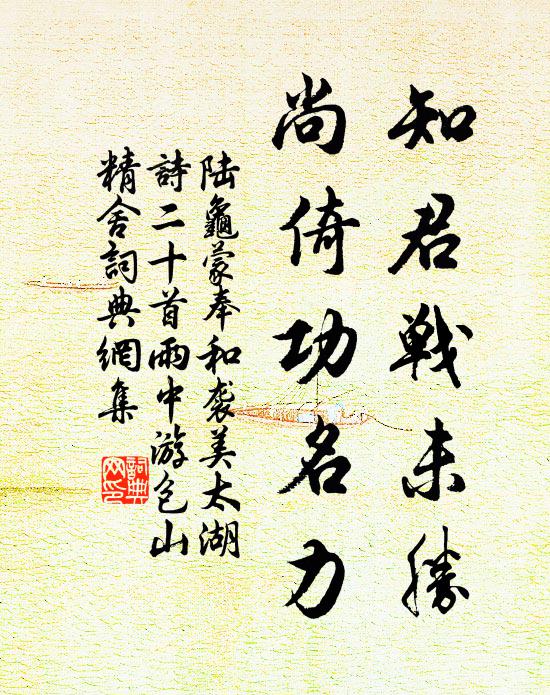 知君戰未勝
尚倚功名力
陆龜蒙奉和袭美太湖
詩二十首雨中游包山
精舍詞典網集
詞典網印